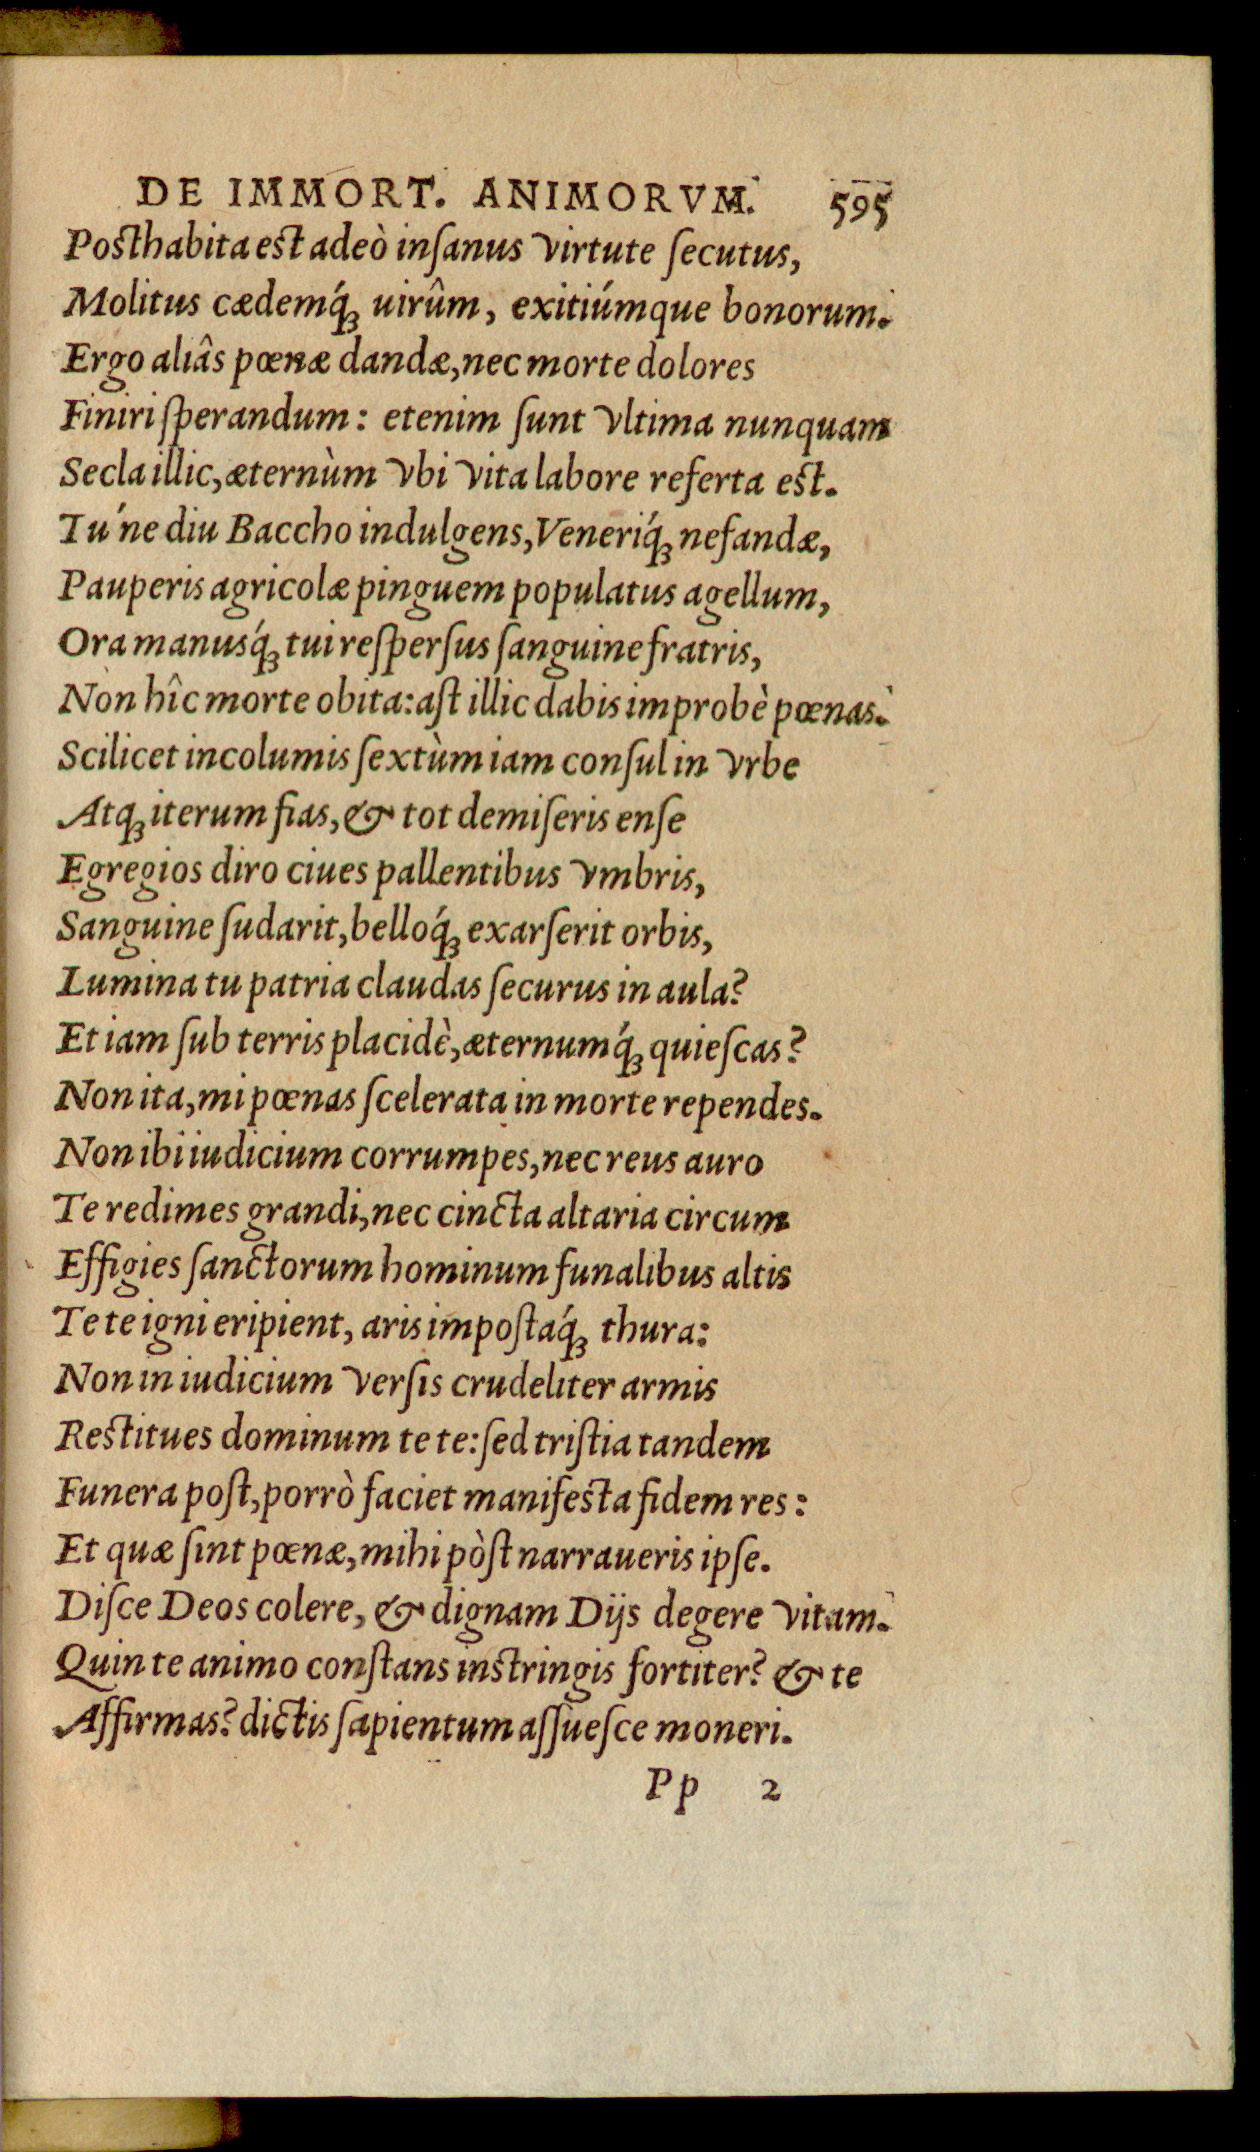 DE IMMORT. ANIMORVM. 595
Posthabita est adeò inſanus virtute ſecutus,
Molitus cædemq́ꝫ uirûm, exitiúmque bonorum.
Ergo aliâs pœnæ dandæ, nec morte dolores
Finiri ſperandum: etenim ſunt vltima nunquam
Secla illic, æternùm vbi vita labore referta est.
Tu'ne diu Baccho indulgens, Veneriq́ꝫ nefandæ,
Pauperis agricolæ pinguem populatus agellum,
Ora manusq́ꝫ tui reſperſus ſanguine fratris,
Non hîc morte obita: aſt illic dabis improbè pœnas.
Scilicet incolumis ſextùm iam conſul in vrbe
Atqꝫ iterum fias, & tot demiſeris enſe
Egregios diro ciues pallentibus vmbris,
Sanguine ſudarit, belloq́ꝫ exarſerit orbis,
Lumina tu patria claudas ſecurus in aula?
Et iam ſub terris placidè, æternumq́ꝫ quieſcas?
Non ita, mi pœnas ſcelerata in morte rependes.
Non ibi iudicium corrumpes, nec reus auro
Te redimes grandi, nec cincta altaria circum
Effigies ſanctorum hominum funalibus altis
Te te igni eripient, aris impoſtaq́ꝫ thura:
Non in iudicium verſis crudeliter armis
Restitues dominum te te: ſed triſtia tandem
Funera poſt, porrò faciet manifesta fidem res:
Et quæ ſint pœnæ, mihi pòſt narraueris ipſe.
Diſce Deos colere, & dignam Dijs degere vitam.
Quin te animo conſtans instringis fortiter? & te
Affirmas? dictis ſapientum aſſueſce moneri.
Pp 2